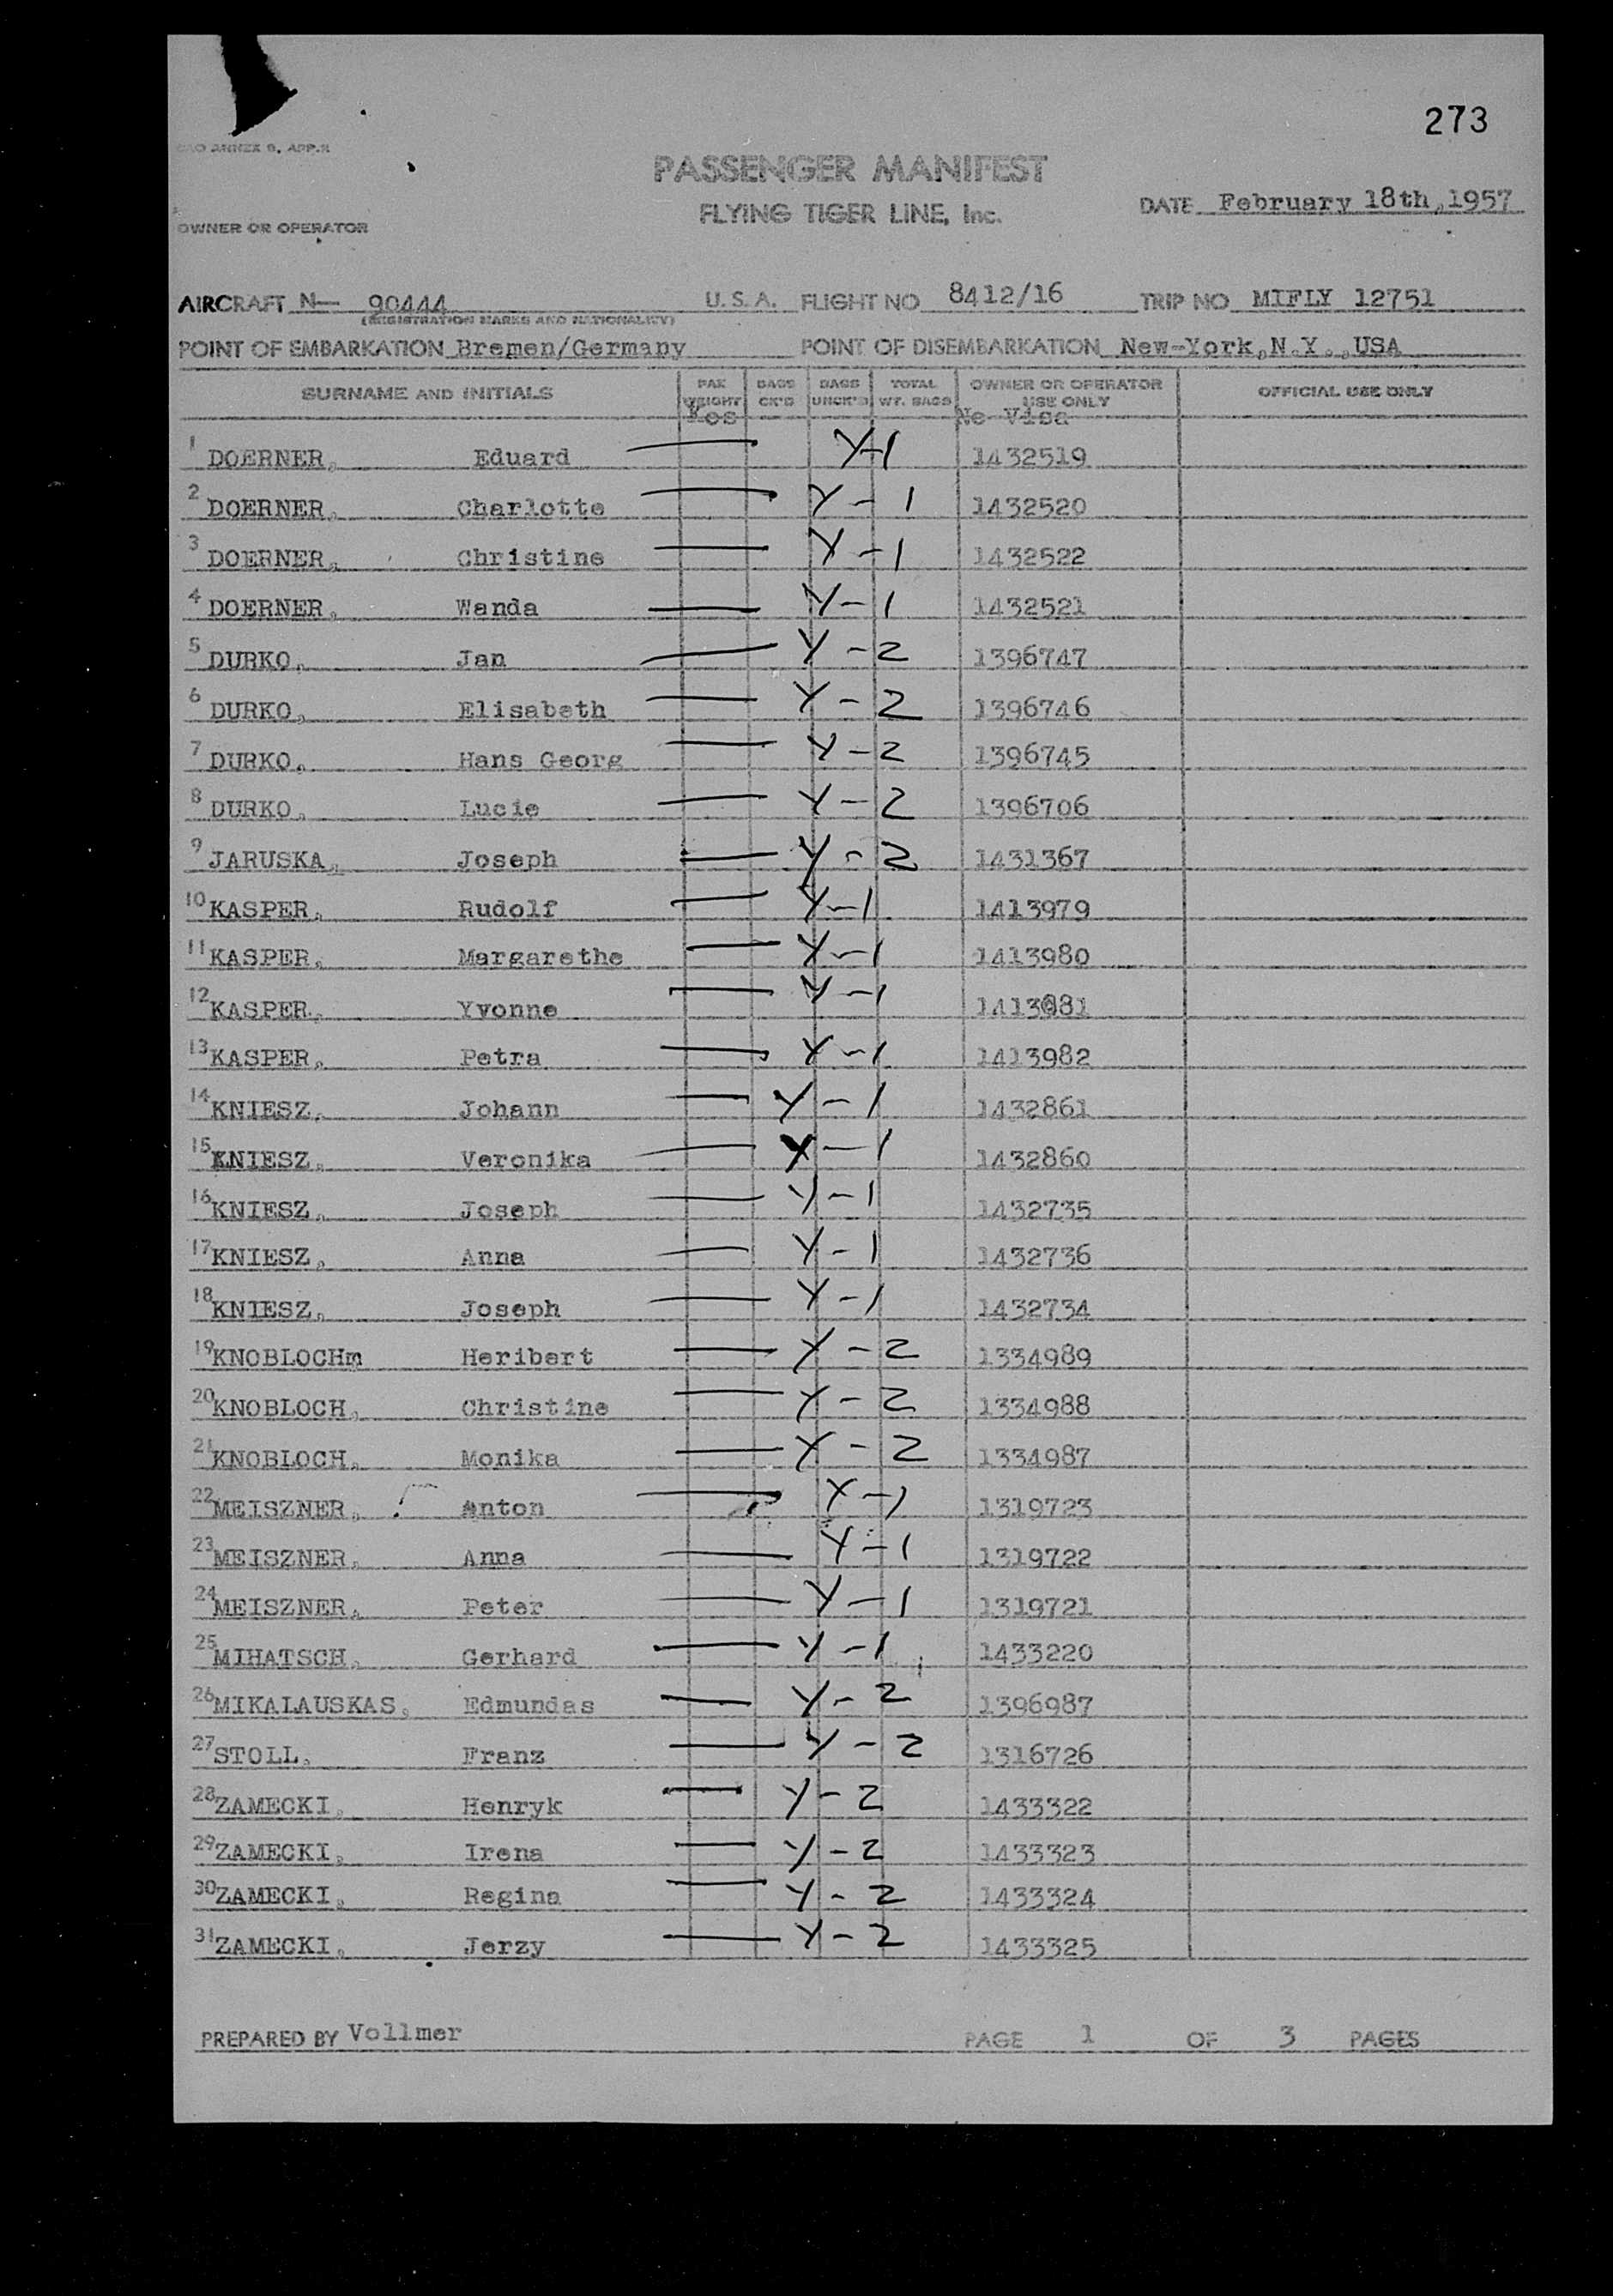 273
ANNEX 9, APP.
PASSENGER MANIFEST
FLYING TIGER LINE, Inc.
DATE February 18th,1957
OWNER OR OPERATOR
AIRCRAFT N— 90444 U. S. A. FLIGHT NO 8412/16 TRIP NO MIFLY 12751
(REGISTRATION MARKS AND NATIONALITY)
POINT OF EMBARKATION Bremen/Germany POINT OF DISEMBARKATION New-York,N.Y.,USA
SURNAME AND INITIALS PAX WEIGHT BAGS CK'D BAGS UNCK'D TOTAL WT. BAGS OWNER OR OPERATOR USE ONLY OFFICIAL USE ONLY
No Visa
1 DOERNER, Eduard — Y-1 1432519
2 DOERNER, Charlotte — Y-1 1432520
3 DOERNER, Christine — Y-1 1432522
4 DOERNER, Wanda — Y-1 1432521
5 DURKO, Jan — Y-2 1396747
6 DURKO, Elisabeth — Y-2 1396746
7 DURKO, Hans Georg — Y-2 1396745
8 DURKO, Lucie — Y-2 1396706
9 JARUSKA, Joseph — Y-2 1431367
10 KASPER, Rudolf — Y-1 1413979
11 KASPER, Margarethe — Y-1 1413980
12 KASPER, Yvonne — Y-1 1413981
13 KASPER, Petra — Y-1 1413982
14 KNIESZ, Johann — Y-1 1432861
15 KNIESZ, Veronika — Y-1 1432860
16 KNIESZ, Joseph — Y-1 1432735
17 KNIESZ, Anna — Y-1 1432736
18 KNIESZ, Joseph — Y-1 1432734
19 KNOBLOCHm Heribert — Y-2 1334989
20 KNOBLOCH, Christine — Y-2 1334988
21 KNOBLOCH, Monika — Y-2 1334987
22 MEISZNER, Anton — Y-1 1319723
23 MEISZNER, Anna — Y-1 1319722
24 MEISZNER, Peter — Y-1 1319721
25 MIHATSCH, Gerhard — Y-1 1433220
26 MIKALAUSKAS, Edmundas — Y-2 1396987
27 STOLL, Franz — Y-2 1316726
28 ZAMECKI, Henryk — Y-2 1433322
29 ZAMECKI, Irena — Y-2 1433323
30 ZAMECKI, Regina — Y-2 1433324
31 ZAMECKI, Jerzy — Y-2 1433325
PREPARED BY Vollmer PAGE 1 OF 3 PAGES